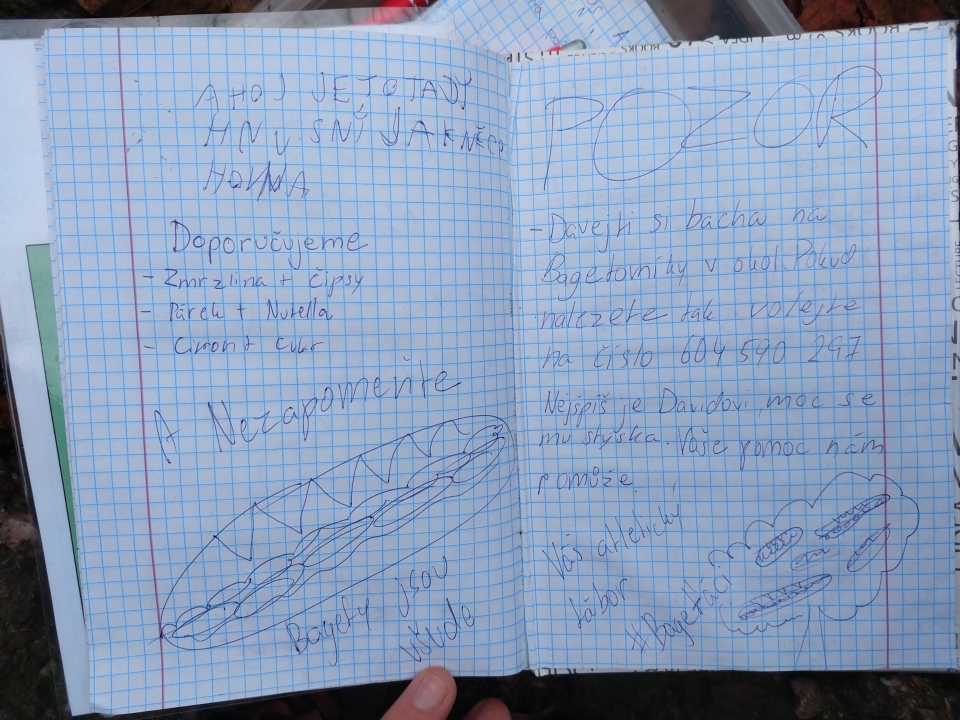 AHOJ JE TO TADY
HNUSNÍ JAK NĚCO
HOVNA
Doporučujeme
- Zmrzlina + čipsy
- Párek + Nutella
- Citron + cukr
A Nezapomeňte
Bagety jsou
všude
POZOR
- Davejti si bacha na
Bagetovníky v okol Pokud
nalezete tak volejte
na číslo 604 590 297
Nejspíš je Davidovi, moc se
mu stýska. Vaše pomoc nám
pomůže
Váš atletický
tábor
#Bagetáci